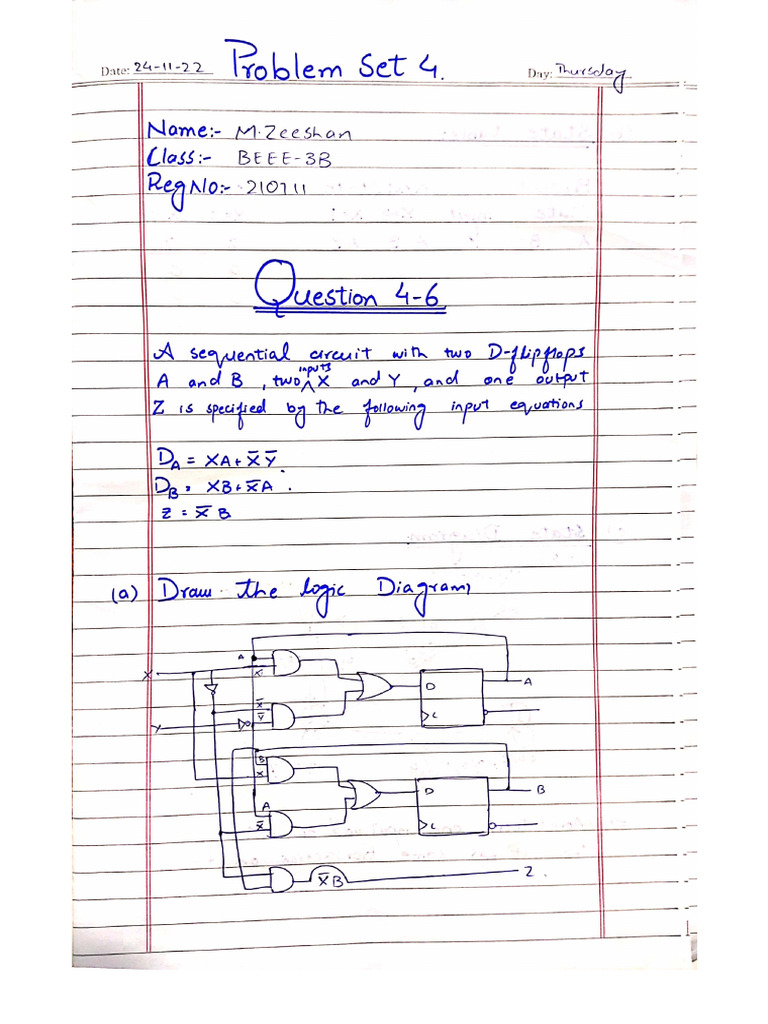 Date: 24-11-22 Problem Set 4. Day: Thursday
Name:- M.Zeeshan
Class:- BEEE-3B
Reg No:- 210711
Question 4-6
A sequential circuit with two D-flipflops
A and B , two inputs X and Y , and one output
Z is specified by the following input equations
D_A = XA + X̅ Y̅ .
D_B = XB + X̅A .
Z = X̅ B
(a) Draw the logic Diagram,
A
X X
D A
X̅
Y Y̅ C
B
X D B
A
X̅ C
X̅B Z.